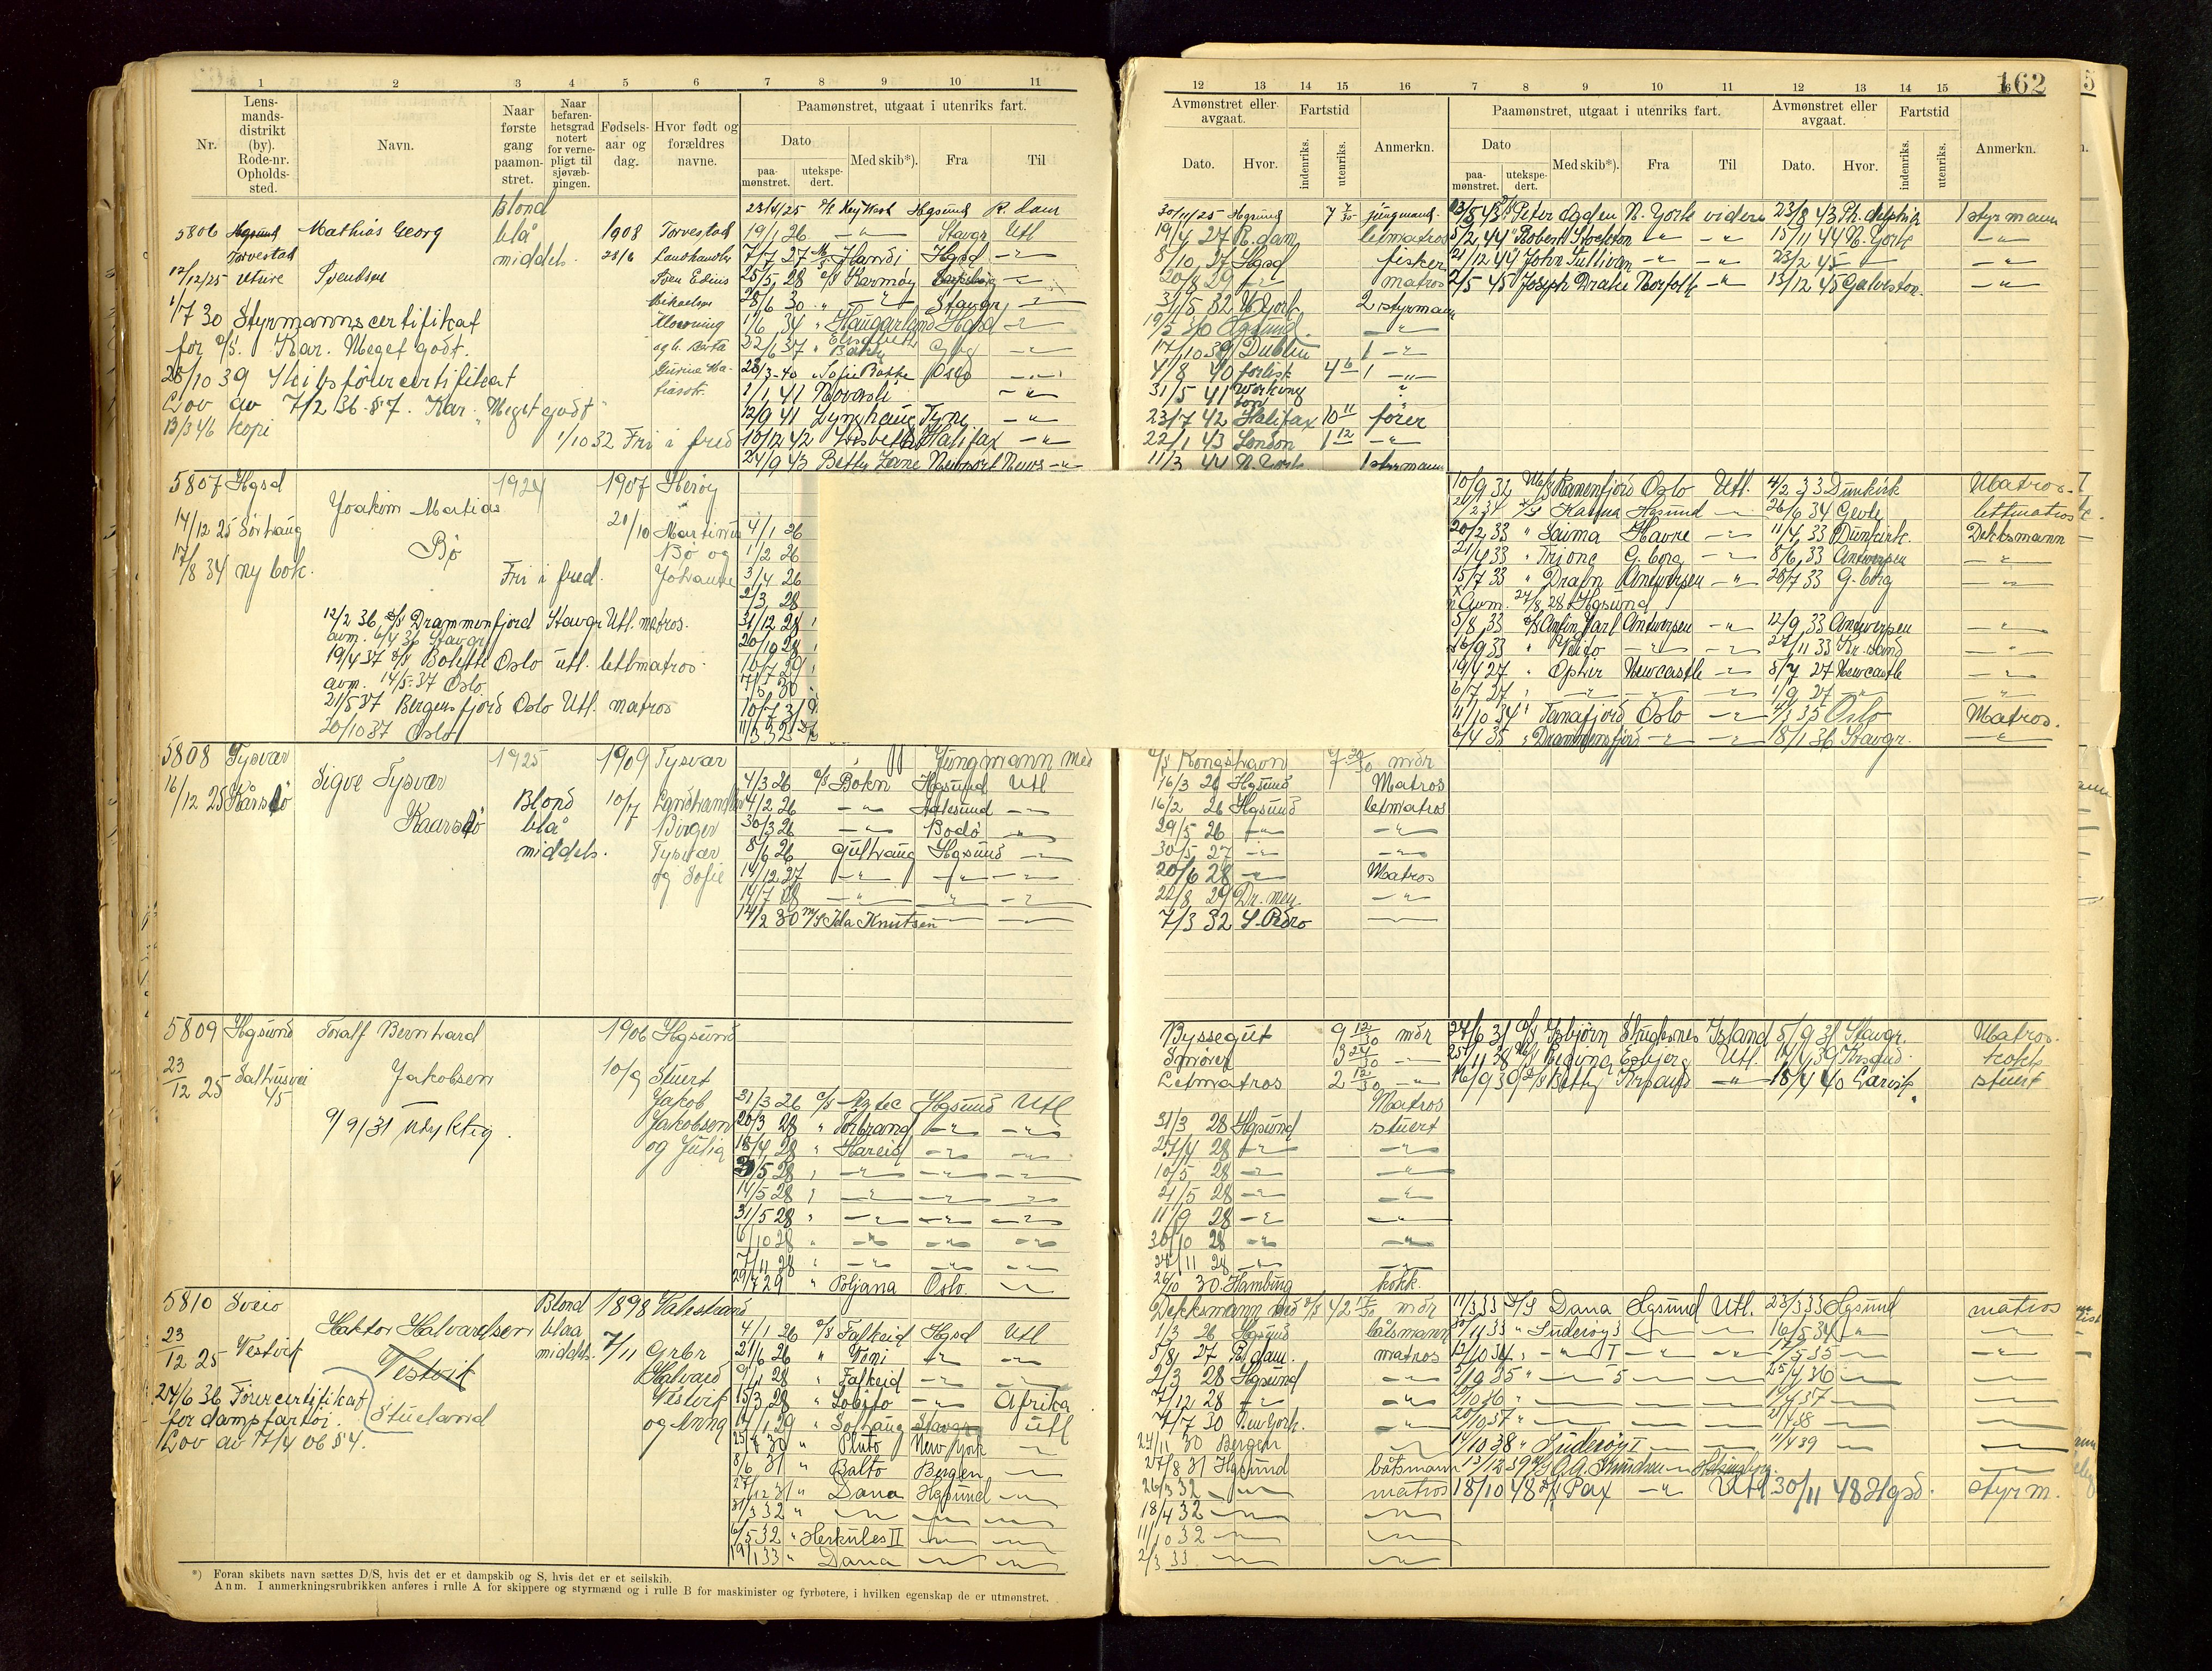 162
1 2 3 4 5 6 7 8 9 10 11
Nr.
Lens-
mands-
distrikt
(by).
Rode-nr.
Opholds-
sted.
Navn.
Naar
første
gang
paamøn-
stret.
Naar
befaren-
hetsgrad
notert
for verne-
pligt til
sjøvæb-
ningen.
Fødsels-
aar og
dag.
Hvor født og
forældres
navne.
Paamønstret, utgaat i utenriks fart.
Dato
paa-
mønstret.
utekspe-
dert.
Med skib*).
Fra
Til
12 13 14 15 16 7 8 9 10 11 12 13 14 15
Avmønstret eller
avgaat.
Dato.
Hvor.
Fartstid
indenriks.
utenriks.
Anmerkn.
Paamønstret, utgaat i utenriks fart.
Dato
paa-
mønstret.
utekspe-
dert.
Med skib*).
Fra
Til
Avmønstret eller
avgaat.
Dato.
Hvor.
Fartstid
indenriks.
utenriks.
Anmerkn.
5806 Hgsund Mathias Georg
Torvestad
12/12 25 Utvire Svendsen
Blond
blå
middels.
1908
Torvestad
Landhandler
Sven Edius
Mikaelsen
og h. Berta
1/7 30 Styrmannscertifikat
for D/S. Kar. Meget godt.
28/10 39 Skibsførercertifikat
Lov av 7/2 36 § 7. Kar. Meget godt
13/3 46 kopi
1/10 32 Fri i fred
23/4/25 Key West Hgsund R.dam
19/1 26 Stavgr Utl
7/7 27 M/S Handi Hgsd
25/5 28 D/S Karmøy
28/6 30 Stavgr
1/6 34 Haugarland Hgsd
22/6 37 Elisabeth Bakke Gbg
28/3-40 Sofie Bakke Oslo
1/1 41 Novasli
12/9 41 Lynghaug Tyne
10/12 42 Lisbeth Halifax
24/9 43 Betty Zane Newport News
30/11/25 Hgsund jungmand.
19/4 27 R.dam letmatros
8/10 27 Hgsd fisker
20/8 29 matros
31/5 32 N.York 2 styrmann
19/5 36 Hgsund
17/10 39 Dublin 1
4/8 40 forlist 1
31/5 41 Workington
23/7 42 Halifax fører
22/1 43 London
11/3 44 N.York 1 styrmann
13/5 43 Peter Ogden N.York videre 23/8 43 Ph.delphia 1 styrmann
5/2 44 Robert Stockton 15/11 44 N.York
21/12 44 John Sullivan 23/2 45
2/5 45 Joseph Drake Norfolk 13/12 45 Galveston
5807 Hgsd Joakim Matias
14/12 25 Sørhaug Bø
17/8 34 ny bok.
1924
Fri i fred.
1907 Herøy
20/10 Martinus
Bø og
Johanne
12/2 36 D/S Drammensfjord Stavgr Utl. matros.
avm. 6/4 36 Stavgr
19/4 37 D/S Bolette Oslo utl. lettmatros.
avm. 14/5-37 Oslo.
21/5 37 Bergensfjord Oslo Utl. matros
20/10 37 Oslo
4/1 26
1/2 26
3/4 26
2/3 28
31/12 28
20/10 28
10/9 32 M/S Ranenfjord Oslo Utl. 4/2 33 Dunkirk Matros.
21/2 34 Karina Hgsund 26/6 34 Gevle lettmatros
20/2 33 Saima Havre 11/4 33 Dunkirk Dekksmann
21/4 33 Trione G.borg 8/6 33 Antwerpen
15/7 33 Drafn Antwerpen 28/7 33 G-borg
Avm. 27/8 28 Hgsund
5/8 33 D/S Anfinn Jarl Antwerpen 12/9 33 Antwerpen
16/9 33 27/11 33 Kr.sand
19/4 27 Ophir Newcastle 5/7 27 Newcastle
6/7 27 1/9 27
11/10 34 Tanafjord Oslo 4/3 35 Oslo Matros.
6/4 35 Drammensfjord 18/1 36 Stavgr.
5808 Tysvær Sigve Tysvær
16/12 25 Kårstø Kaarstø
1925
Blond
blå
middels.
1909 Tysvær
10/7 Landhandler
Birger
Tysvær
og Sofie
Jungmann med
D/S Kongshavn mdr
4/3 26 D/S Bokn Hgsund Utl 16/3 26 Hgsund Matros
4/2 26 Aalesund 16/2 26 Hgsund letmatros
30/3 26 Bodø 29/5 26
8/6 26 Gulhaug Hgsund 30/5 27
14/12 27 20/6 28 Matros
14/7 28 22/8 29 Dr.men
14/2 30 M/S Ida Knutsen 7/3 32 S. Pedro
5809 Hgsund Toralf Bernhard
23/12 25 Salhusvei 45 Jakobsen
9/9/31 Udyktig.
1906 Hgsund
10/9 Stuert
Jakob
Jakobsen
og Julia
Byssegut 9 12/30 mdr
Smører 3 24/30
Letmatros 2 12/30
31/3 26 D/S Aztec Hgsund Utl Matros
20/3 28 Torbrand 31/3 28 Hgsund stuert
18/4 28 Hareid 27/4 28
5 28 10/5 28
14/5 28 21/5 28
31/5 28 11/9 28
6/10 28 30/10 28
7/11 28 24/11 28
29/7 29 Poljana Oslo 26/10 30 Hamburg kokk.
24/6 31 D/S Isbjørn Skudesnes Island 5/9 31 Stavgr. Matros.
25/11 38 Regina Esbjerg Utl. 14/4 39 Krsund kokk
16/9 39 D/S Betty Krsand 18/4 40 Larvik stuert
5810 Sveio Haktor Halvardsen
23/12 25 Vestvik Vestvik
Stueland
24/6 36 Førercertifikat
for dampfartøi.
Lov av 17/4 06 § 4.
Blond
blaa
middels.
1898 Valestrand
7/11 Grbr
Halvard
Vestvik
og Anna
Dekksmann med D/S 42 mdr
4/1 26 D/S Falkeid Hgsd Utl 1/3 26 Hgsund båtsmann
21/6 26 Voni 5/8 27 R.dam. matros
9/1 28 Falkeid 2/3 28 Hgsund
15/3 28 Lobito Afrika 7/12 28
17/1 29 Solhaug Stavgr Utl 7/7 30 New York.
25/8 30 Pluto New York 24/11 30 Bergen
8/6 31 Balto Bergen 27/8 31 Hgsund båtsmann
27/12 31 Dana Hgsund 26/3 32 matros
31/3 32 18/4 32
6/5 32 Herkules II 11/10 32
19/1 33 Dana 2/3 33
11/3 33 D/S Dana Hgsund Utl. 23/3 33 Hgsund matros
30/11 33 Suderøy 3 16/5 34
12/10 34 I 17/5 35
5/10 35 5 25/4 36
20/10 36 19/4 37
20/10 37 21/4 38
14/10 38 Suderøy I 11/4 39
13/12 39 O.A. Knudsen Helsingborg.
18/10 48 Pax Utl 30/11 48 Hgsd. styrm.
*) Foran skibets navn sættes D/S, hvis det er et dampskib og S, hvis det er et seilskib.
Anm. I anmerkningsrubrikken anføres i rulle A for skippere og styrmænd og i rulle B for maskinister og fyrbøtere, i hvilken egenskap de er utmønstret.